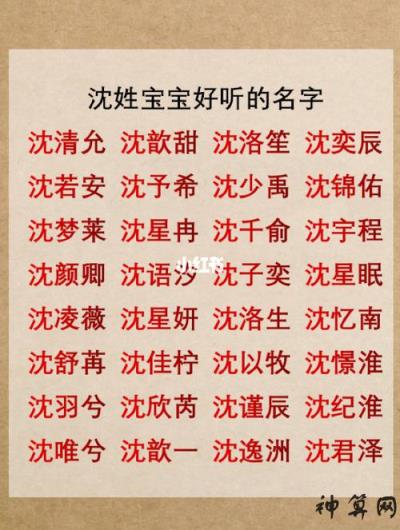 沈姓宝宝好听的名字
沈清允 沈歆甜 沈洛笙 沈奕辰
沈若安 沈予希 沈少禹 沈锦佑
沈梦莱 沈星冉 沈千俞 沈宇程
沈颜卿 沈语汐 沈子奕 沈星眠
小红书
沈凌薇 沈星妍 沈洛生 沈忆南
沈舒苒 沈佳柠 沈以牧 沈憬淮
沈羽兮 沈欣芮 沈谨辰 沈纪淮
沈唯兮 沈歆一 沈逸洲 沈君泽
神算网